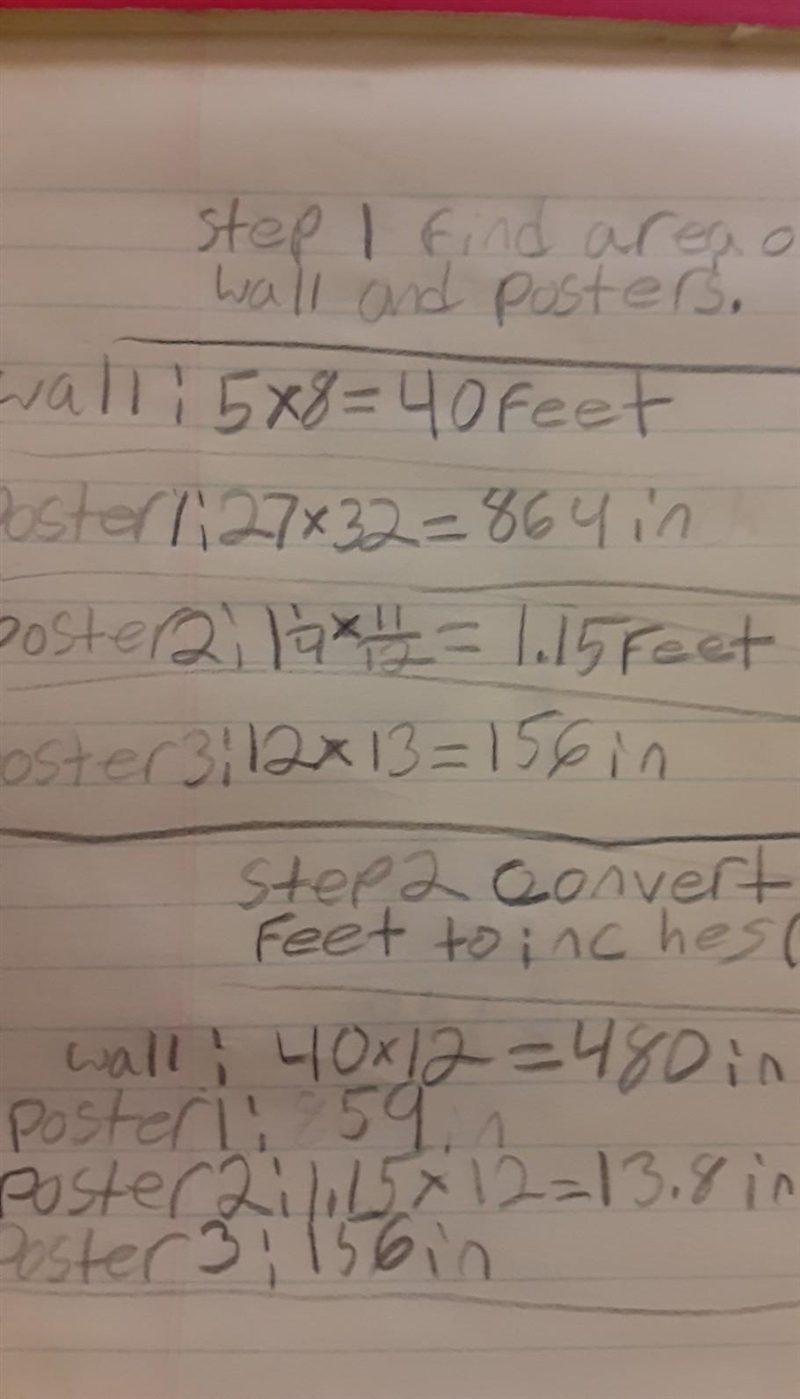 step 1 find area o
wall and posters.
wall: 5x8=40 Feet
Poster 1: 27x32=864 in
poster 2: 1 1/4 x 11/12 = 1.15 Feet
oster 3: 12x13=156 in
step 2 convert
Feet to inches(
wall: 40x12=480 in
poster 1: 59 in
poster 2: 1.15x12=13.8 in
Poster 3: 156 in